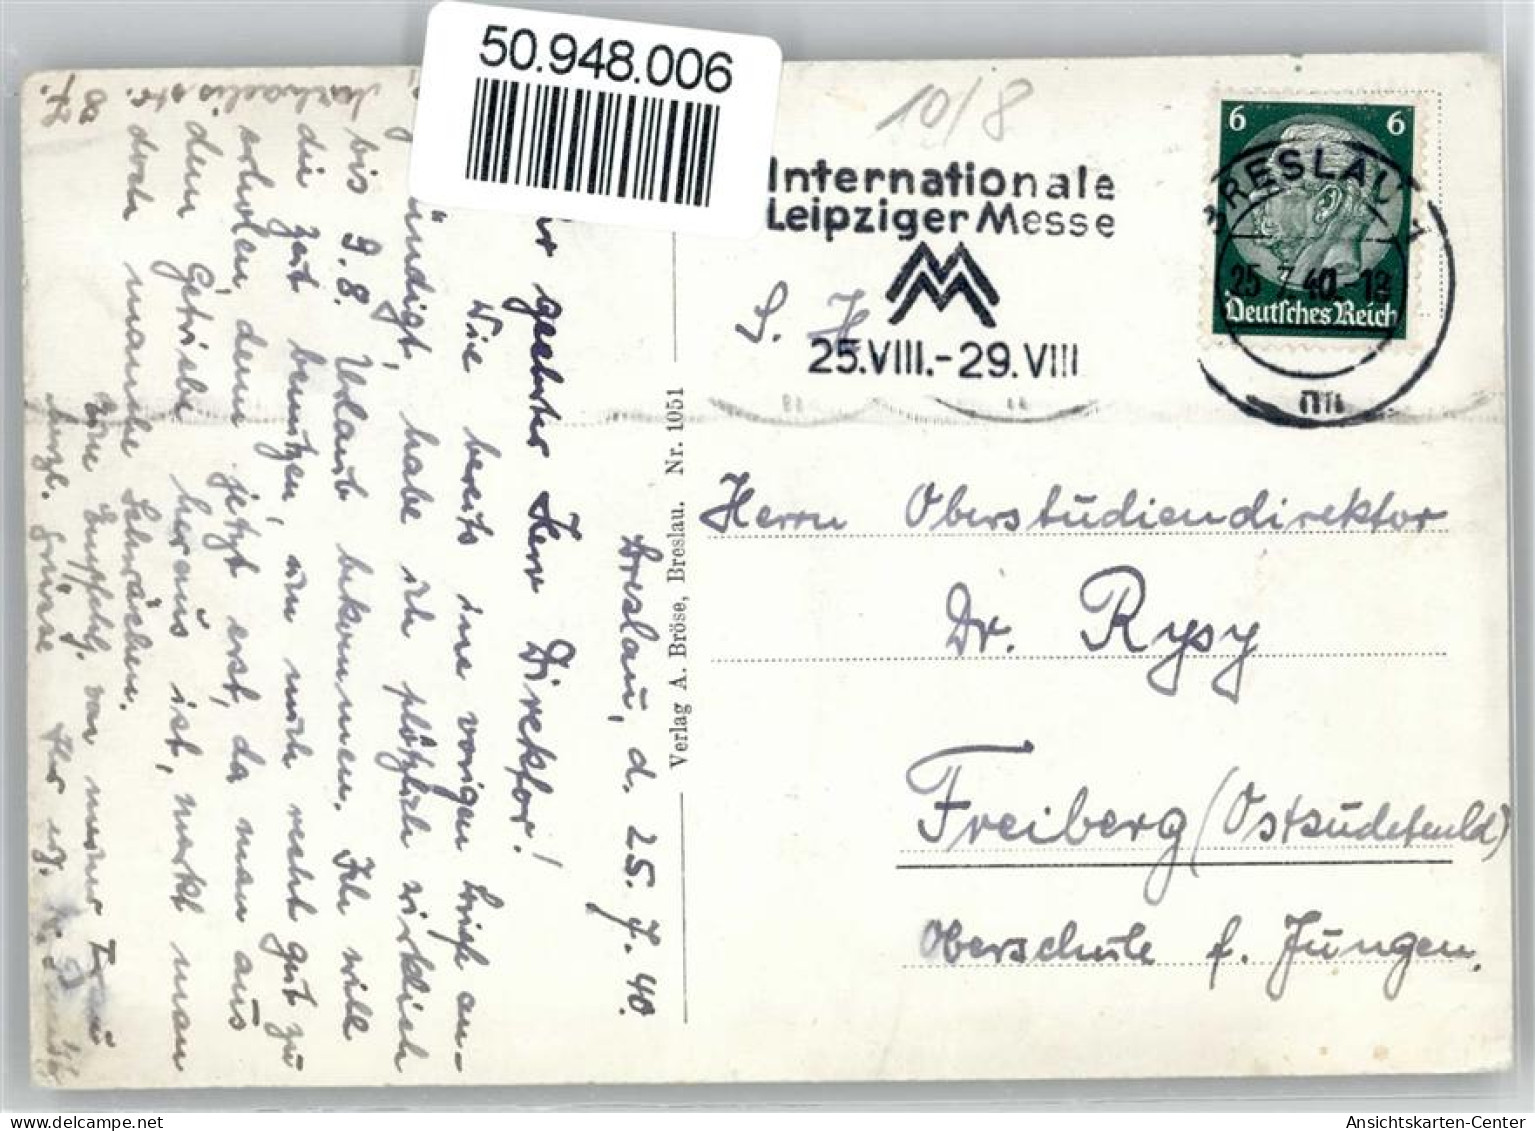 50.948.006
10/8
Internationale
Leipziger Messe
25.VIII.-29.VIII
6 6
BRESLAU 1
25 7 40.-18
Deutsches Reich
S. H.
Herrn Oberstudiendirektor
Dr. Rysy
Freiberg (Ostsudetenld)
Oberschule f. Jungen.
Verlag A. Bröse, Breslau. Nr. 1051
Breslau, d. 25.7.40.
geehrter Herr Direktor!
Wie bereits im vorigen Brief an-
kündigt, habe ich plötzlich wirklich
bis 9.8. Urlaub bekommen. Ich will
die Zeit benutzen, um mich recht gut zu
erholen, denn jetzt erst, da man aus
dem Getriebe heraus ist, merkt man
doch manche Schwächen.
Eine Empfehlg. von meiner Frau
herzl. Grüsse Ihr
87.